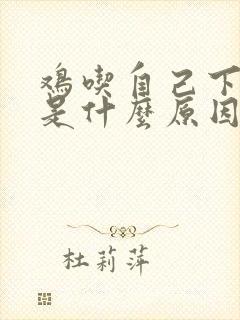 鸡喫自己下
是什麼原因
杜莉萍